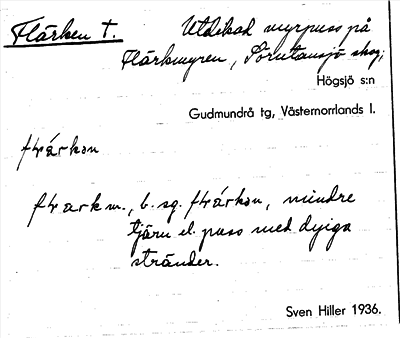 Flärken T. Utdikad myrpuss på
Flärkmyren, Sörutansjö skog,
Högsjö s:n
Gudmundrå tg, Västernorrlands l.
flärkon
flark m., b. sg. flärkon, mindre
tjärn el. puss med dyiga
stränder.
Sven Hiller 1936.